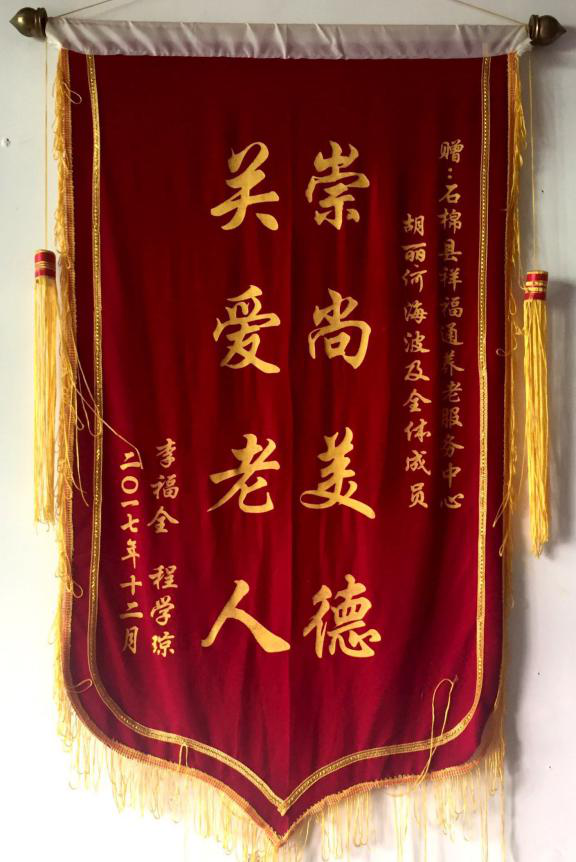 赠：石棉县祥福通养老服务中心
胡丽何海波及全体成员
崇尚美德
关爱老人
李福全 程学琼
二〇一七年十二月